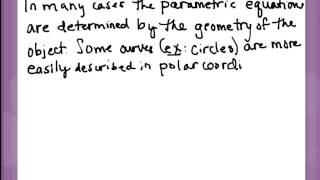 In many cases the parametric equation
are determined by the geometry of the
object. Some curves (ex: circles) are more
easily described in polar coordi